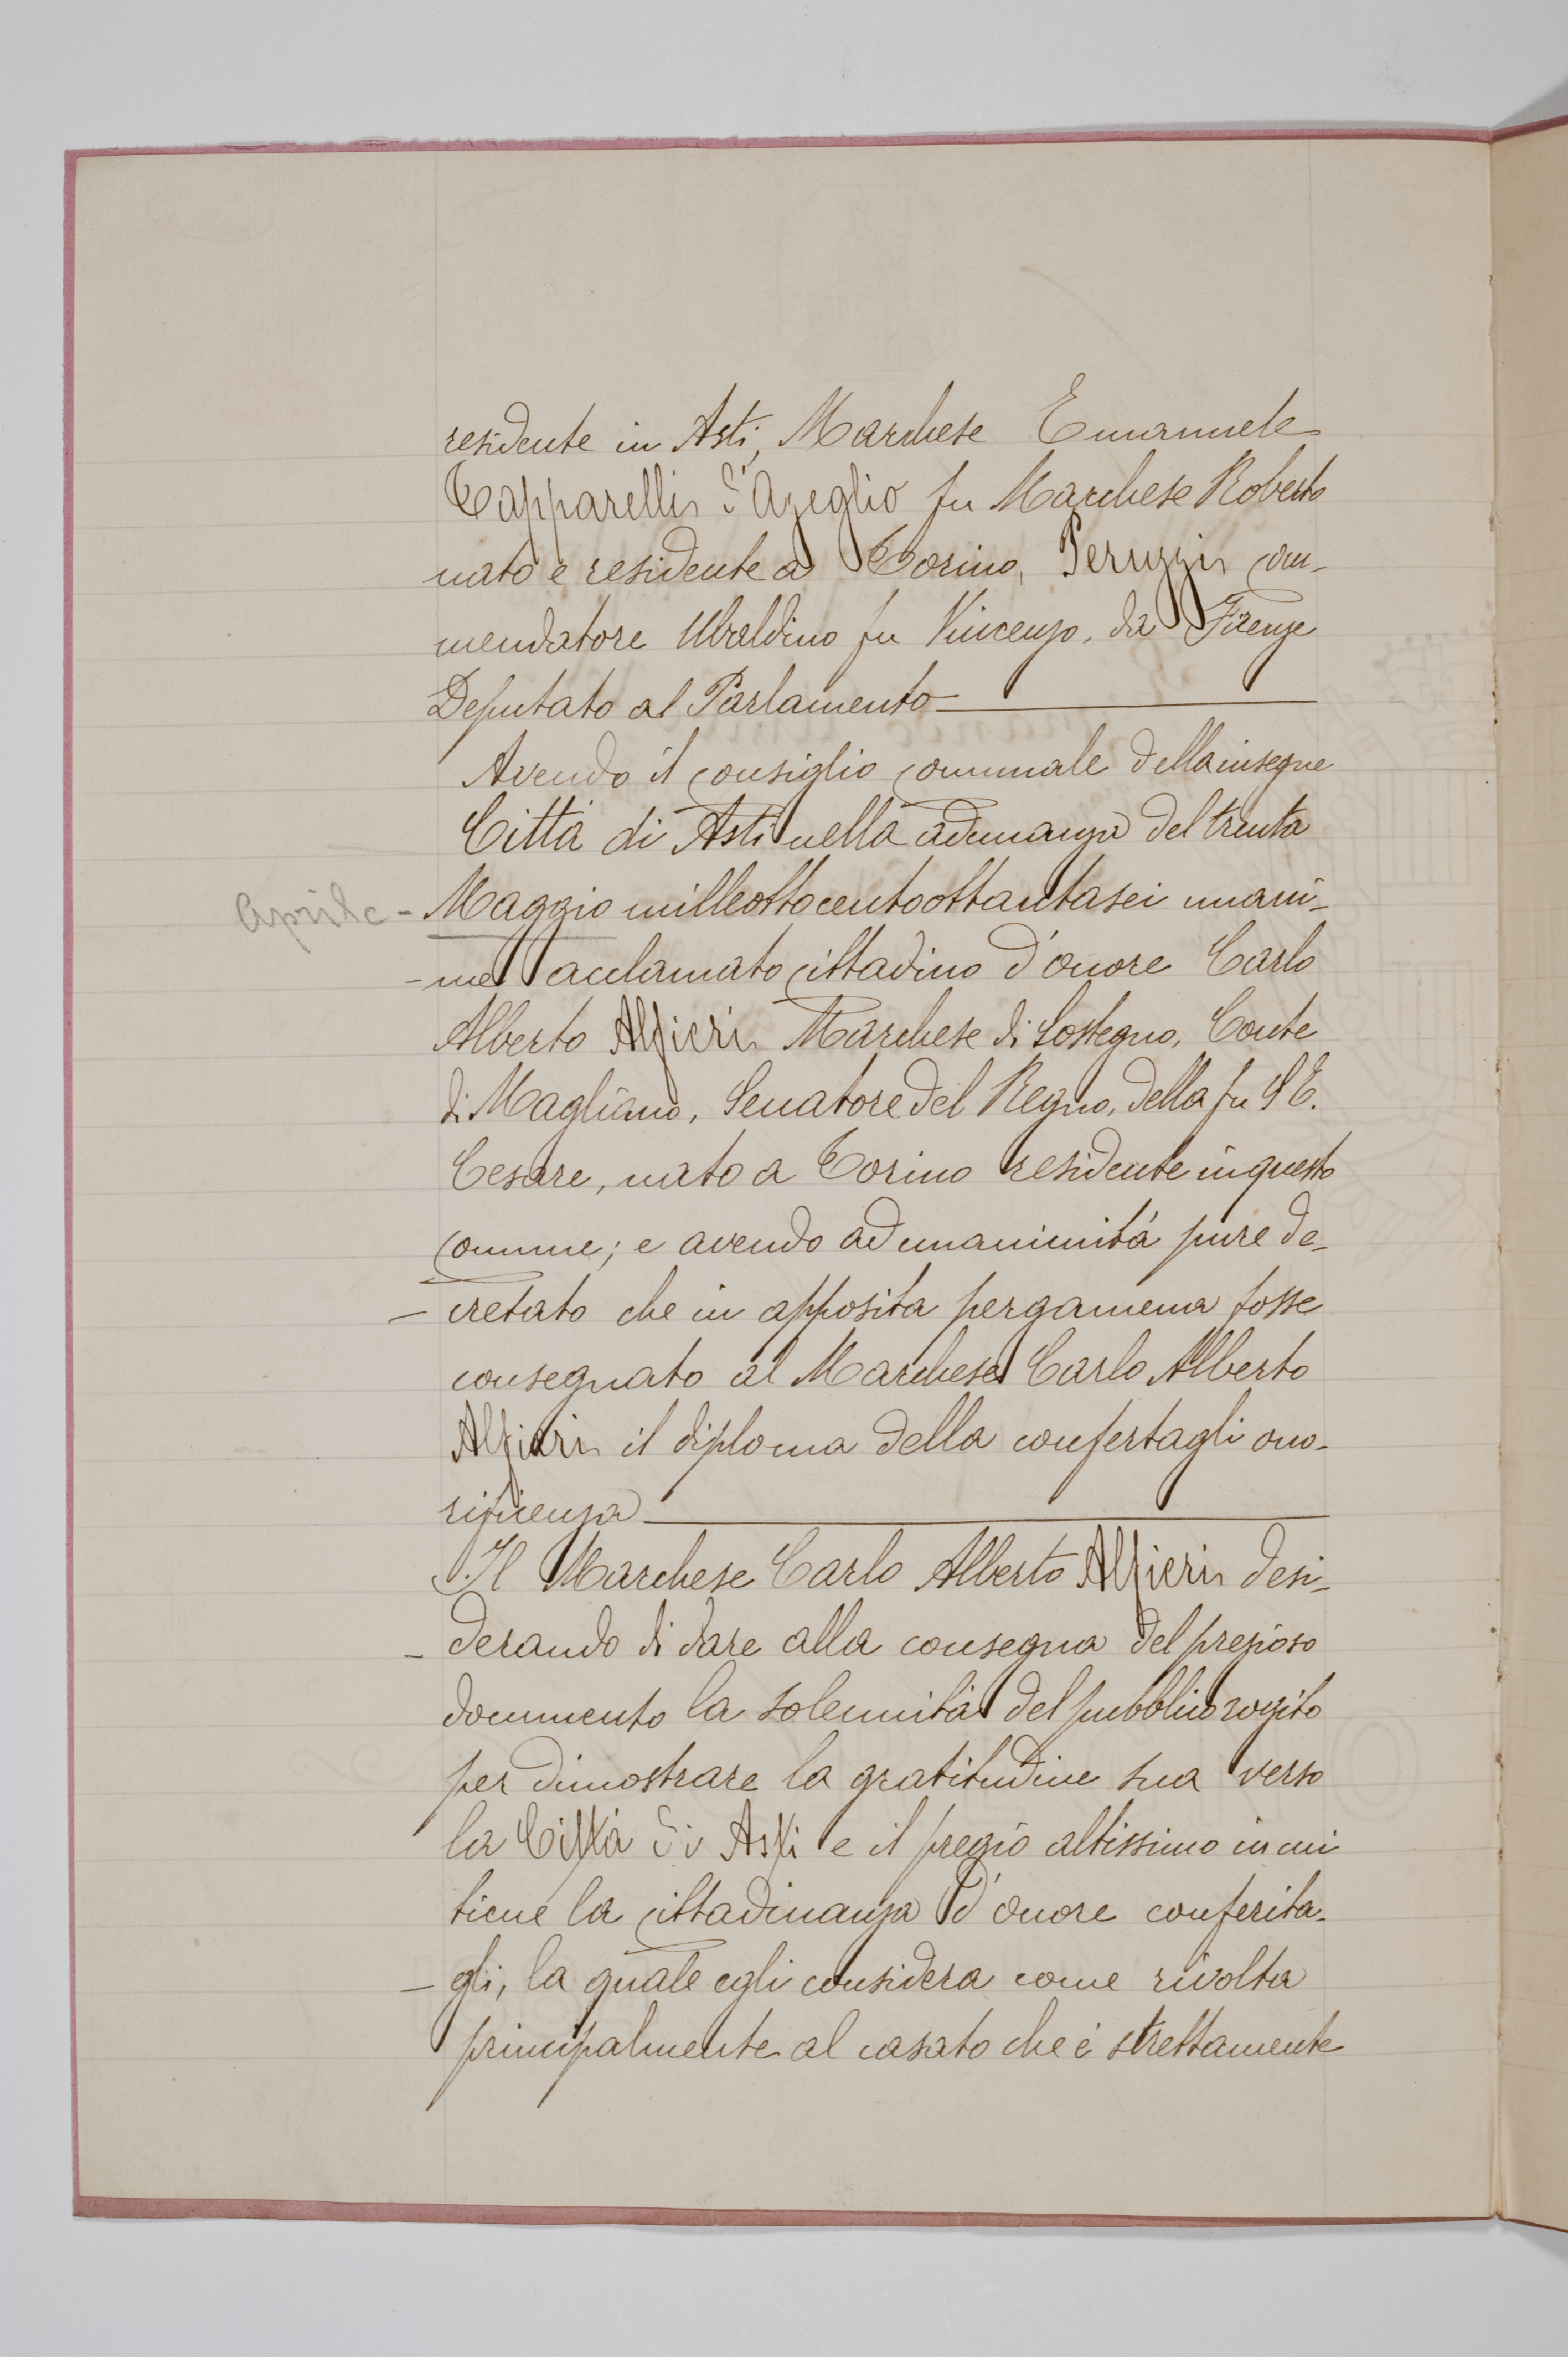 residente in Asti, Marchese Emanuele
Tapparelli d'Azeglio fu Marchese Roberto
nato e residente a Torino, Peruzzi com-
mendatore Ubaldino fu Vincenzo, da Firenze
Deputato al Parlamento
Avendo il consiglio comunale della insegne
Città di Asti nella adunanza del trenta
Aprile - Maggio milleottocentoottantasei unani-
-me acclamato cittadino d'onore Carlo
Alberto Alfieri Marchese di Sostegno, Conte
di Magliano, Senatore del Regno, della fu S E.
Cesare, nato a Torino residente in questo
comune; e avendo ad unanimità pure de-
- cretato che in apposita pergamena fosse
consegnato al Marchese Carlo Alberto
Alfieri il diploma della confertagli ono-
rificenza
Il Marchese Carlo Alberto Alfieri desi-
- derando di dare alla consegna del prezioso
documento la solennità del pubblico rogito
per dimostrare la gratitudine sua verso
la Città di Asti e il pregio altissimo in cui
tiene la cittadinanza d'onore conferita-
- gli, la quale egli considera come rivolta
principalmente al casato che è strettamente